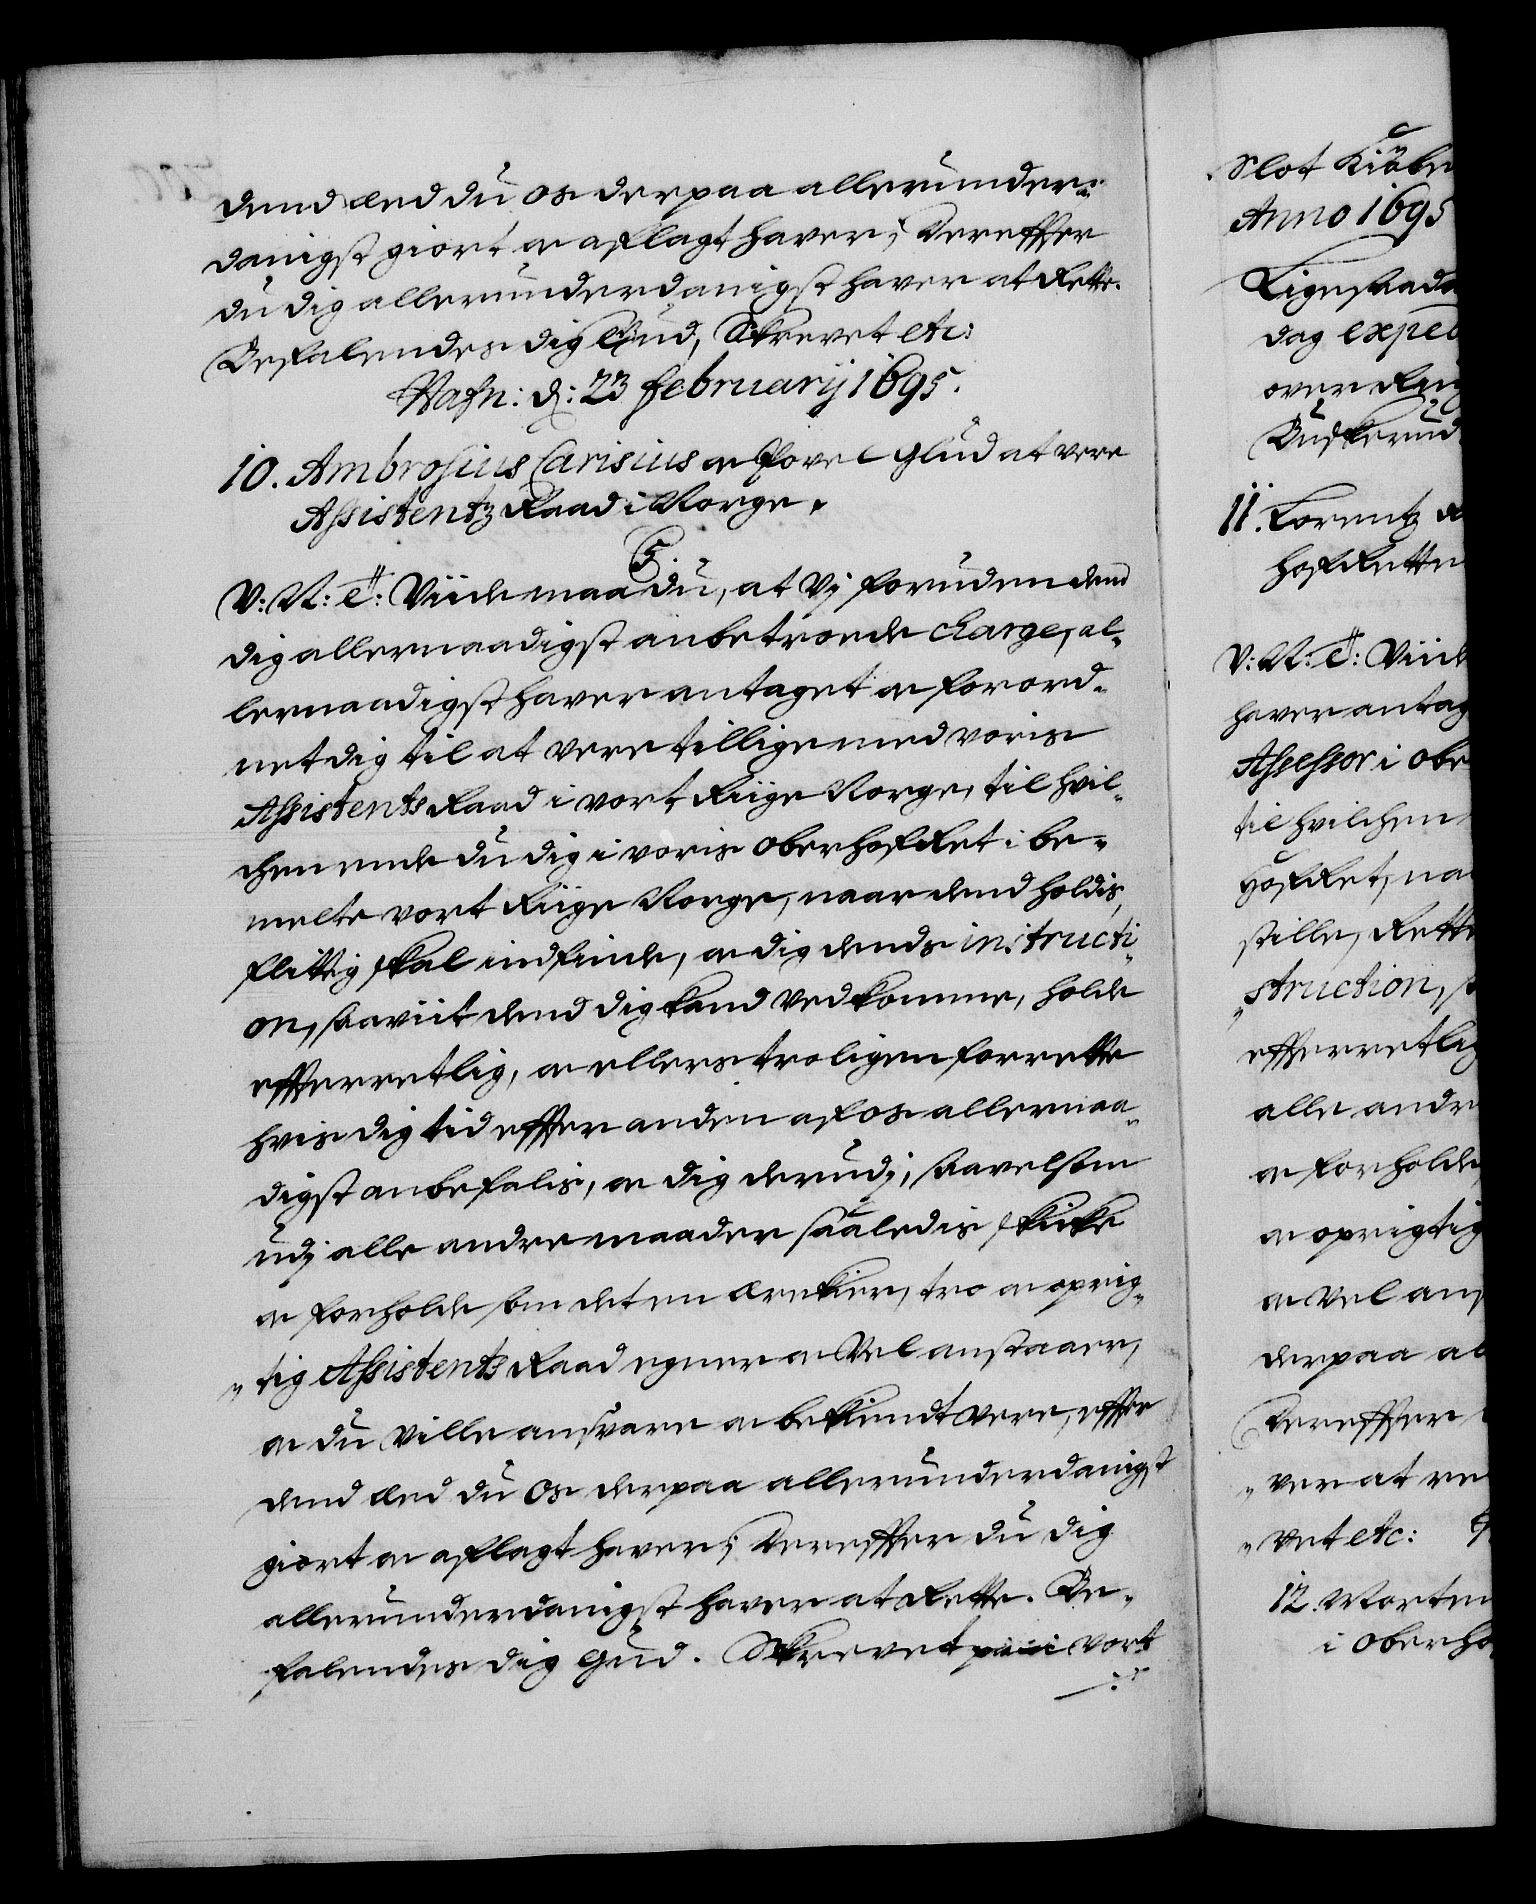 dend æd du os derpaa allerunder-
danigst giort oc aflagt haver; Derefter
du dig allerunderdanigst haver at Rette.
Befalendes dig Gud, Skrevet etc:
Hafn: d: 23 Februarij 1695.
10. Ambrosius Carisius oc Povel Glud at vere
Assistentz Raad i Norge.
C5.
V: N: G: Viide maa du, at Vj foruden dend
dig allernaadigst anbetroede charge, al-
lernaadigst haver antaget oc forord-
net dig til at vere tillige med voris
Assistents Raad i vort Riige Norge, til hvil-
chen ende du dig i voris oberhofRet i be-
melte vort Riige Norge, naar dend holdis,
flittig skal indfinde, oc dig dends instructi-
on, saaviit dend dig kand vedkomme, holde
efterretlig, oc ellers troligen forrette
hvis dig tid efter anden af os allernaa-
digst anbefalis, oc dig derudj, saavelsom
udj alle andre maader saaledis skicke
oc forholde som det en ærekier, tro oc oprig-
tig Assistents Raad egner oc Vel anstaaer,
oc du ville ansvare oc bekiendt vere, efter
dend æd du Os derpaa allerunderdanigst
giort oc aflagt haver; Derefter du dig
allerunderdanigst haver at Rette. Be-
falendes dig Gud. Skrevet paa vort
Slot Kiøbe
Anno 1695
Ligesaada
dag exped
over Rin
Budskerud
11. Lorentz
hofRette
V: N: G: Viide
haver antag
Assessor i obe
til hvilchen
HofRet, na
stille, Rette
struction, s
efterretlig
alle andre
oc forholde
oc oprigtig
oc Vel ans
derpaa al
Derefter
ver at re
vet etc:
12. Morten
i oberho